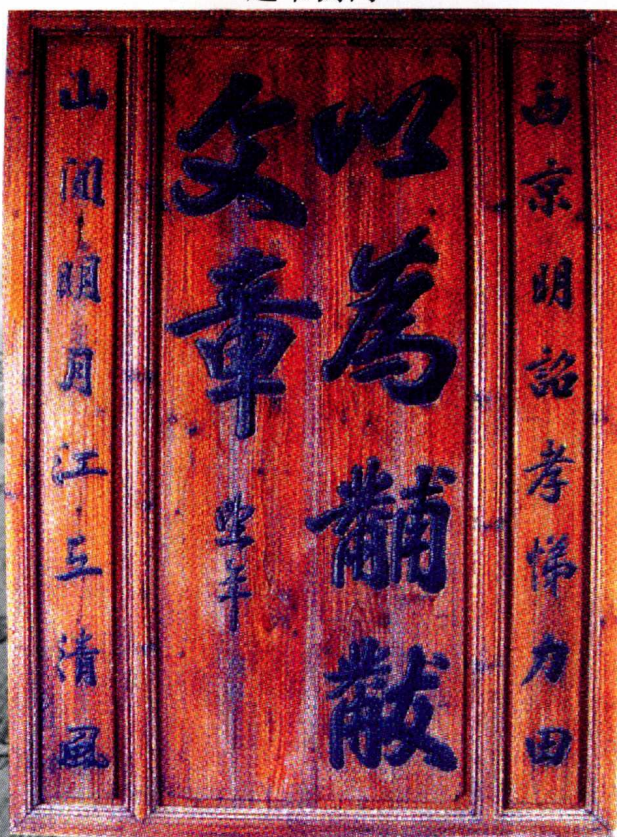 西京明詔孝悌力田
以為黼黻
文章
山間明月江上清風